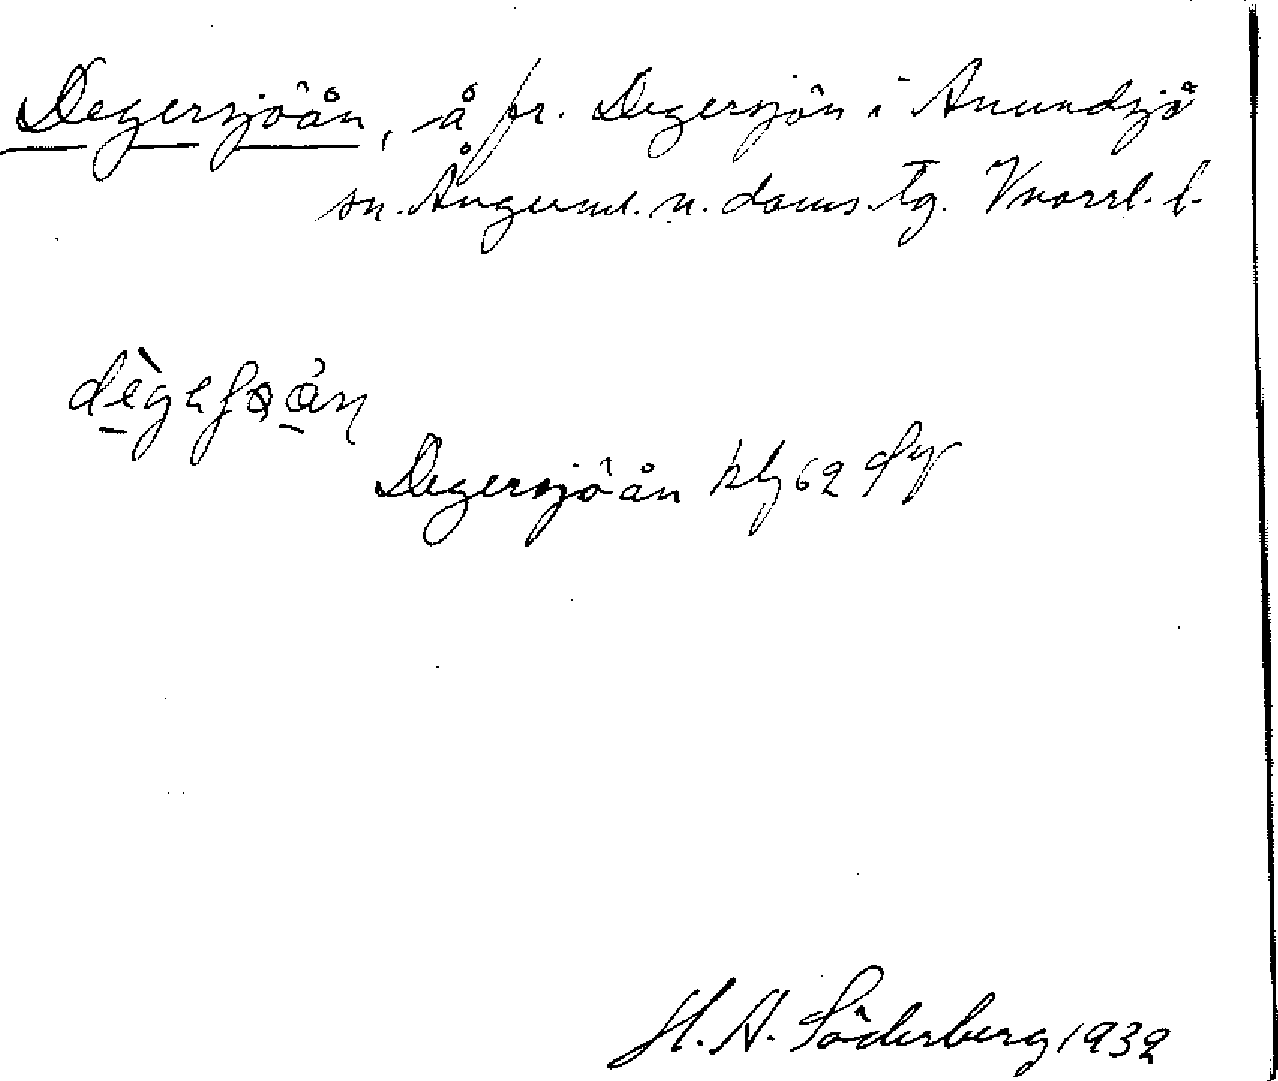 Degersjöån, å fr. Degersjön i Anundsjö
sn. Ångerml. n. doms.tg. Vnorrl. l.
Degersjöån kbl 62 Sy
H. A. Söderberg 1932